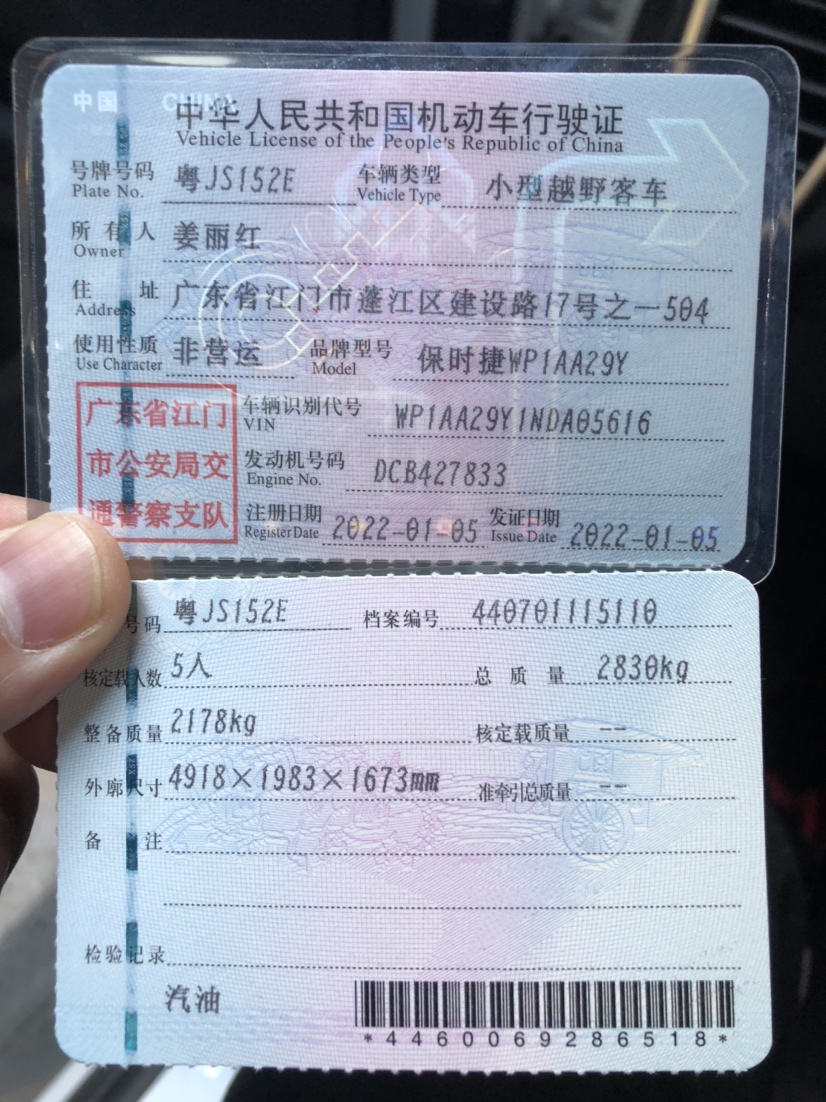 中国 CHINA
中华人民共和国机动车行驶证
Vehicle License of the People's Republic of China
号牌号码 粤JS152E 车辆类型 小型越野客车
Plate No. Vehicle Type
所有人 姜丽红
Owner
住址 广东省江门市蓬江区建设路17号之一504
Address
使用性质 非营运 品牌型号 保时捷WP1AA29Y
Use Character Model
广东省江门
市公安局交
通警察支队
车辆识别代号 WP1AA29Y1NDA05616
VIN
发动机号码 DCB427833
Engine No.
注册日期 2022-01-05 发证日期 2022-01-05
Register Date Issue Date
号码 粤JS152E 档案编号 440701115110
核定载人数 5人 总质量 2830kg
整备质量 2178kg 核定载质量 --
外廓尺寸 4918×1983×1673mm 准牵引总质量 --
备注
检验记录
汽油
*4460069286518*